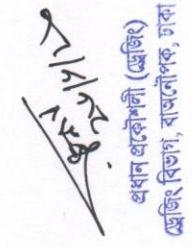 প্রধান প্রকৌশলী (ড্রেজিং)
ড্রেজিং বিভাগ, বাঅনৌপক, ঢাকা